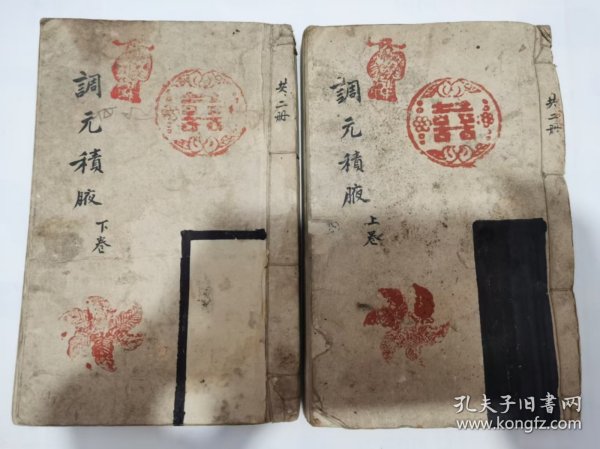 調元積腋
下卷
共二冊
囍
調元積腋
上卷
共二冊
囍
孔夫子旧书网
www.kongfz.com